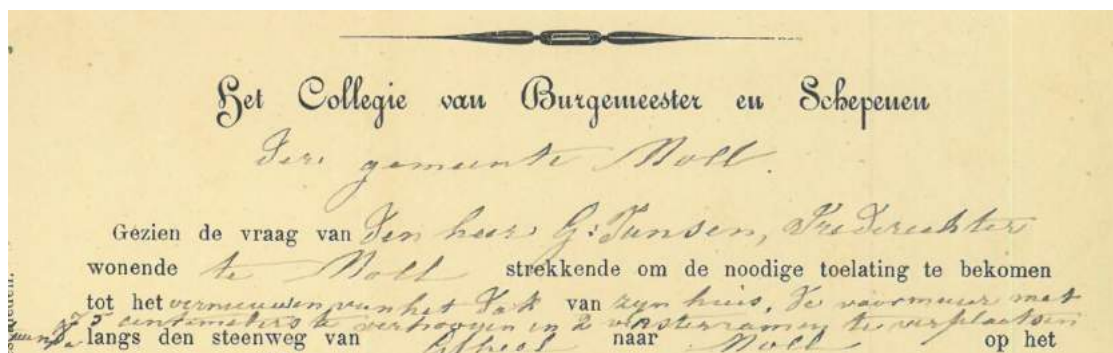 Het Collegie van Burgemeester en Schepenen
der gemeente Moll.
Gezien de vraag van den heer G. Jansen, Vrederechter
wonende te Moll strekkende om de noodige toelating te bekomen
tot het vernieuwen van het dak van zyn huis, de voormuur met
5 centimeters te verhoogen en 2 vensterramen te verplaatsen
langs den steenweg van Gheel naar Moll op het